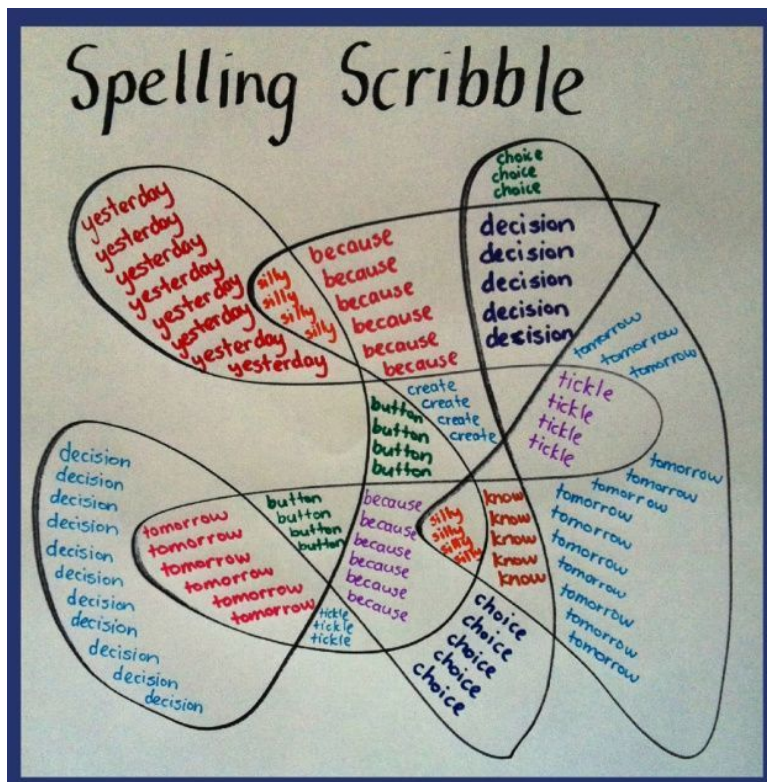 Spelling Scribble
yesterday
yesterday
yesterday
yesterday
yesterday
yesterday
yesterday
yesterday
silly
silly
silly
silly
because
because
because
because
because
because
choice
choice
choice
decision
decision
decision
decision
decision
tomorrow
tomorrow
tomorrow
create
create
create
create
button
button
button
button
tickle
tickle
tickle
tickle
decision
decision
decision
decision
decision
decision
decision
decision
decision
decision
decision
button
button
button
button
tomorrow
tomorrow
tomorrow
tomorrow
tomorrow
tickle
tickle
tickle
because
because
because
because
because
because
silly
silly
silly
silly
know
know
know
know
know
tomorrow
tomorrow
tomorrow
tomorrow
tomorrow
tomorrow
tomorrow
tomorrow
tomorrow
tomorrow
choice
choice
choice
choice
choice